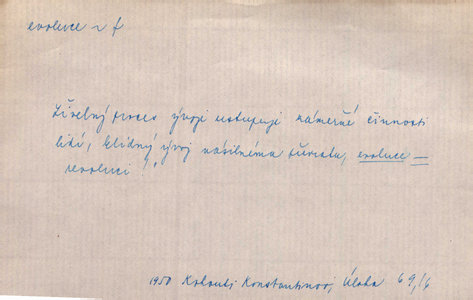 evoluce ~ f
Živelný proces vývoje ustupuje záměrné činnosti
lidí, klidný vývoj násilnému převratu, evoluce —
revoluci
1950 Konstantinov, Úloha 69/16